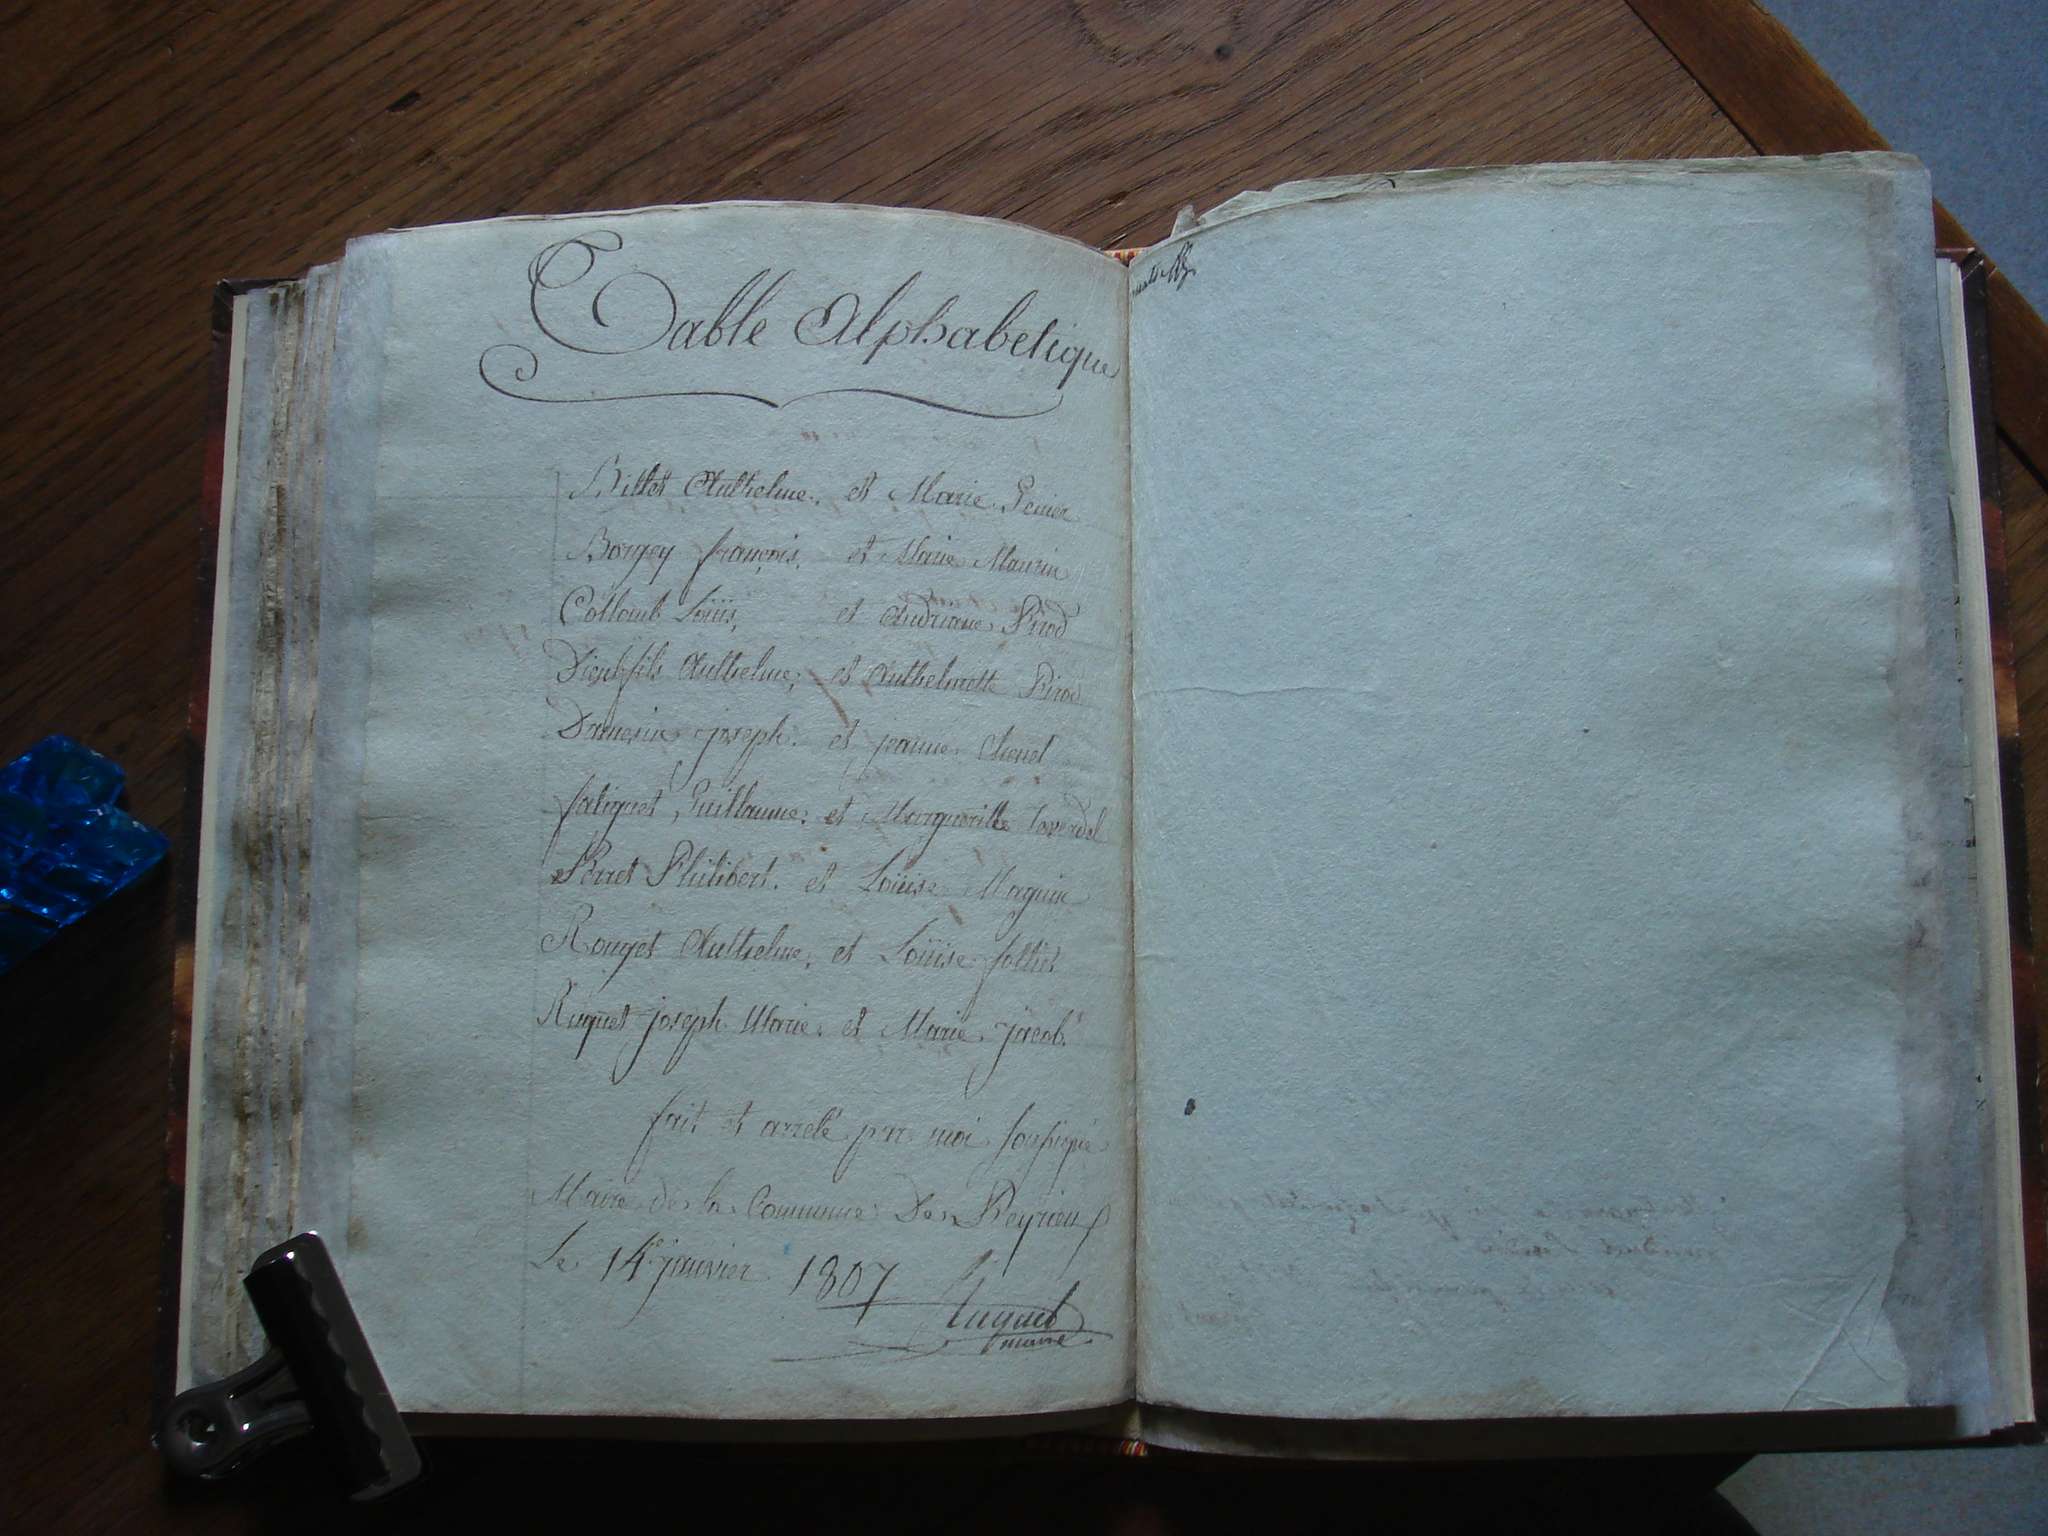 Table Alphabetique
Billet Anthelme, et Marie Genier
Borgey françois, et Marie Maurin
Collomb Loüis, et Andriane Pirod
Dieufils Anthelme, et Anthelmette Pirod
Dumerin joseph. et jeanne
faliquet Guillaume, et Margueritte Taverdel
Perret Philibert. et Loüise Maguin
Rouget Anthelme, et Loüise folliet
Ruquet joseph Marie, et Marie jacob.
fait et arreté par moi soussigné
Maire de la Commune De Peyrieu
Le 14e janvier 1807
maire